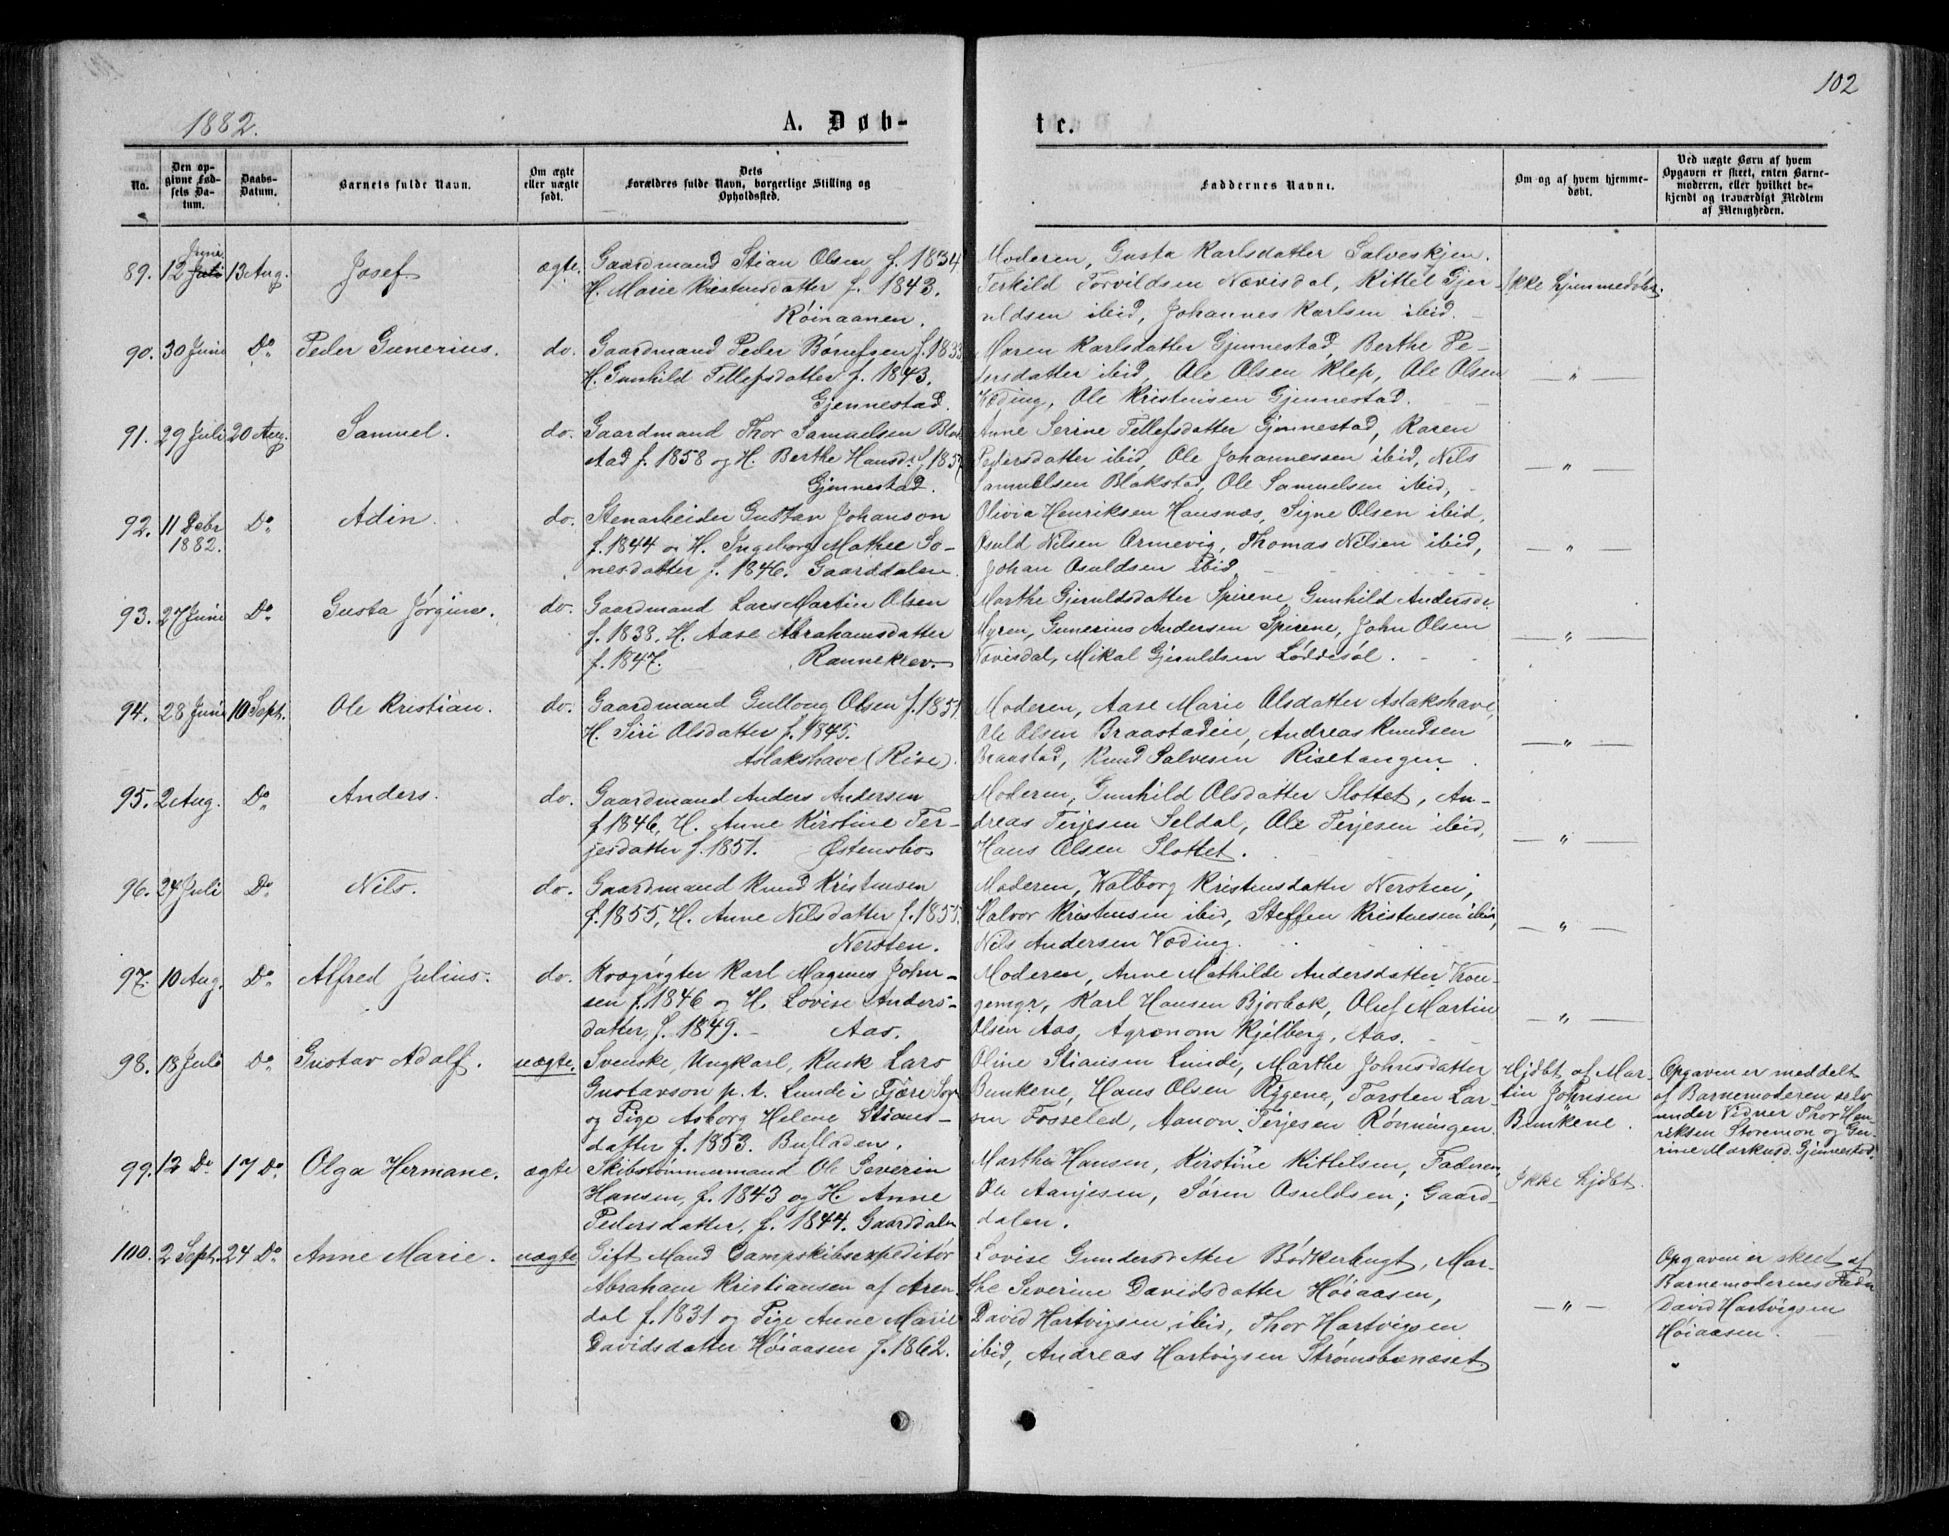 102
1882.
A. Døb-
te.
No.
Den op-
givne Fød-
sels Da-
tum.
Daabs-
Datum.
Barnets fulde Navn.
Om ægte
eller uægte
født.
Dets
Forældres fulde Navn, borgerlige Stilling og
Opholdssted.
Faddernes Navne.
Om og af hvem hjemme-
døbt.
Ved uægte Børn af hvem
Opgaven er skeet, enten Barne-
moderen, eller hvilket be-
kjendt og troværdigt Medlem
af Menigheden.
89. 12 Juni Juli 13 Aug. Josef ægte. Gaardmand Stian Olsen f. 1834
H. Marie Kristensdatter f. 1843.
Röinaanen.
Moderen, Gusta Karlsdatter Salveskjen.
Terkild Torvildsen Nævisdal, Kittel Gjer-
uldsen ibid, Johannes Karlsen ibid.
Ikke hjemmedøbt.
90. 30 Juni Do Peder Gunerius. do. Gaardmand Peder Börufsen f. 1833
H. Gunhild Tellefsdatter f. 1843.
Gjennestad.
Maren Karlsdatter Gjennestad, Berthe Pe-
dersdatter ibid, Ole Olsen Klep, Ole Olsen
Væding, Ole Kristensen Gjennestad.
— " —
91. 29 Juli 20 Aug. Samuel. do. Gaardmand Thor Samuelsen Blak-
stad f. 1858 og H. Berthe Hansd. f. 1857
Gjennestad.
Anne Serine Tellefsdatter Gjennestad, Karen
Pedersdatter ibid, Ole Johannessen ibid, Nils
Samuelsen Blakstad, Ole Samuelsen ibid,
— " —
92. 11 Febr Do Adin. do. Stenarbeider Gustav Johanson
1882.
f. 1844 og H. Ingeborg Mathee So-
nesdatter f. 1846. Gaarddalen.
Olivia Henriksen Hausnæs, Signe Olsen ibid,
Osuld Nilsen Ormevig, Thomas Nilsen ibid,
Johan Osuldsen ibid
— " —
93. 27 Juni Do Gusta Jörgine. do. Gaardmand Lars Martin Olsen
f. 1838. H. Aase Abrahamsdatter
f. 1847. Ranneklev.
Marthe Gjeruldsdatter Spirene, Gunhild Andersd.
Myren, Gunerius Andersen Spirene, John Olsen
Nævisdal, Mikal Gjeruldsen Løddesøl.
— " —
94. 28 Juni 10 Sept. Ole Kristian. do. Gaardmand Gullong Olsen f. 1851
H. Siri Olsdatter f. 1845.
Aslakshave (Rise).
Moderen, Aase Marie Olsdatter Aslakshave,
Ole Olsen Braastadeie, Andreas Knudsen
Braastad, Knud Salvesen Risetangen.
— " —
95. 2 Aug. Do Anders. do. Gaardmand Anders Andersen
f. 1846, H. Anne Kirstine Ter-
jesdatter f. 1851. Østensbo.
Moderen, Gunhild Olsdatter Slottet, An-
dreas Terjesen Seldal, Ole Terjesen ibid,
Hans Olsen Slottet.
— " —
96. 24 Juli Do Nils. do. Gaardmand Knud Kristensen
f. 1855, H. Anne Nilsdatter f. 1855.
Nersten.
Moderen, Valborg Kristensdatter Nersten,
Halvor Kristensen ibid, Steffen Kristensen ibid,
Nils Andersen Væding.
— " —
97. 10 Aug. Do Alfred Julius. do. Kvægrøgter Karl Magnus John-
sen f. 1846 og H. Lovise Anders-
datter f. 1849. — Aas.
Moderen, Anne Mathilde Andersdatter
Karl Hansen Bjorbæk, Oluf Martin
Olsen Aas, Agronom Kjelberg, Aas.
— " —
98. 18 Juli Do Gustav Adolf. uægte. Svenske, Ungkarl, Kusk Lars
Gustavson p. t. Lunde i Fjære Sogn
og Pige Asborg Helene Stians-
datter f. 1853. Bulladen.
Oline Stiansen Lunde, Marthe Johnsdatter
Bunkene, Hans Olsen Rygene, Torsten Lar-
sen Fosseled, Aanon Terjesen Rønningen
Hjdbt af Mar-
tin Johnsen
Bunkene.
Opgaven er meddelt
af Barnemoderen selv
under Vidner Thor Hen-
riksen Storemon og Gu-
rine Markusd. Gjennestad.
99. 12 Do 17 Do Olga Hermane. ægte Skibstømmermand Ole Severin
Hansen, f. 1843 og H. Anne
Pedersdatter, f. 1844. Gaarddalen
Marthe Hansen, Kirstine Kittilsen, Faderen,
Ole Aanjesen, Søren Osuldsen; Gaard-
dalen.
Ikke hjdbt.
100. 2 Sept. 24 Do Anne Marie. uægte Gift Mand Dampskibsexpeditör
Abraham Kristiansen af Aren-
dal f. 1831 og Pige Anne Marie
Davidsdatter Höiaasen f. 1862.
Lovise Gundersdatter Bødkerbugt, Mar-
the Severine Davidsdatter Höiaasen,
David Hartvigsen ibid, Thor Hartvigsen
ibid, Andreas Hartvigsen Strømsbonæset
— " —
Opgaven er skeet af
Barnemoderens Fader
David Hartvigsen
Höiaasen.